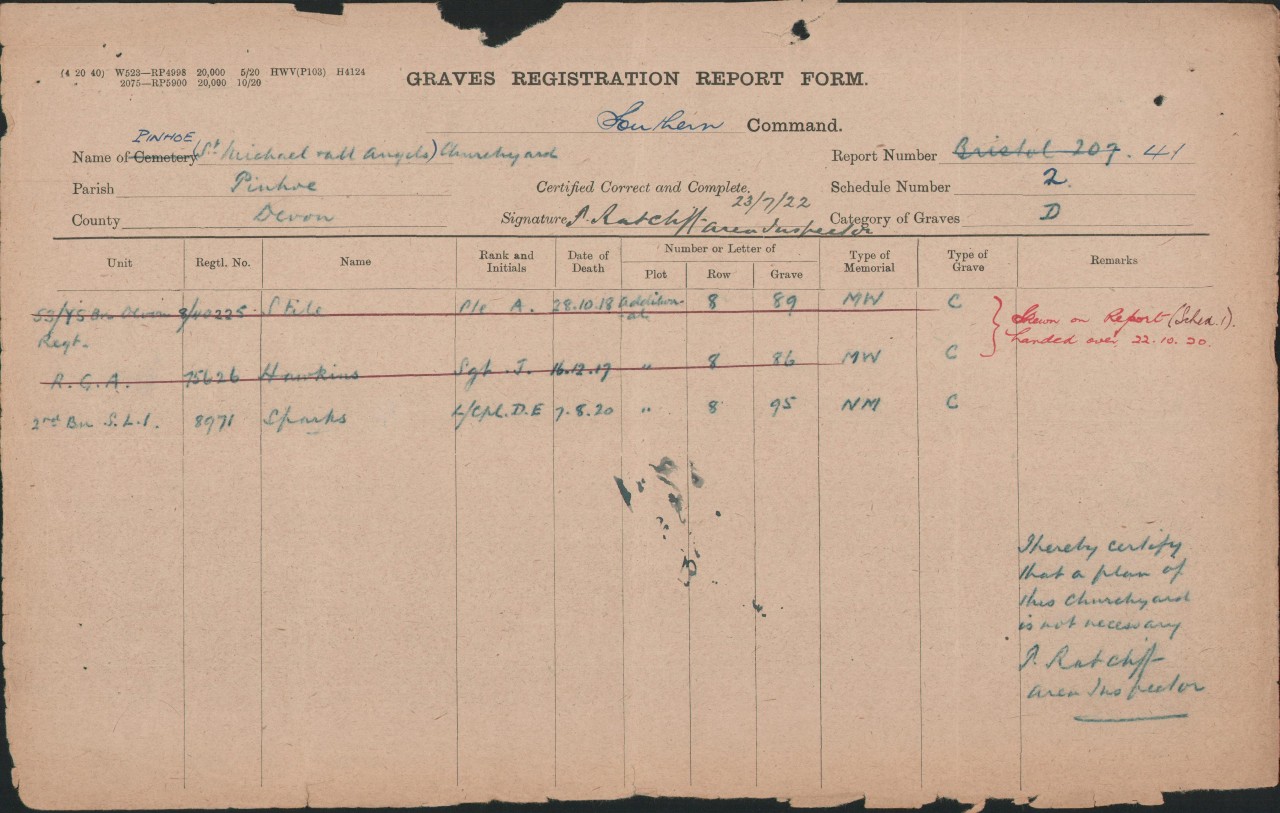 (4 20 40) W523—RP4998 20,000 5/20 HWV(P103) H4124
2075—RP5900 20,000 10/20
GRAVES REGISTRATION REPORT FORM.
Southern Command.
PINHOE
Name of Cemetery (St Michael & All Angels) Churchyard
Report Number Bristol 207. 41
Parish Pinhoe
Certified Correct and Complete.
Schedule Number 2
23/7/22
County Devon
Signature P. Ratcliff Area Inspector
Category of Graves D
Unit Regtl. No. Name Rank and Initials Date of Death Number or Letter of Plot Row Grave Type of Memorial Type of Grave Remarks
53/ Bn Devon Regt. 8/40225 Stile Pte A. 28.10.18 Additional 8 89 MW C
Shewn on Report (Sched. 1).
handed over 22.10.20.
R.G.A. 75626 Hawkins Sgt J. 16.12.17 " 8 86 MW C
2nd Bn S.L.I. 8971 Sparks L/Cpl. D.E 7.8.20 " 8 95 NM C
I hereby certify
that a plan of
this Churchyard
is not necessary
P. Ratcliff
Area Inspector